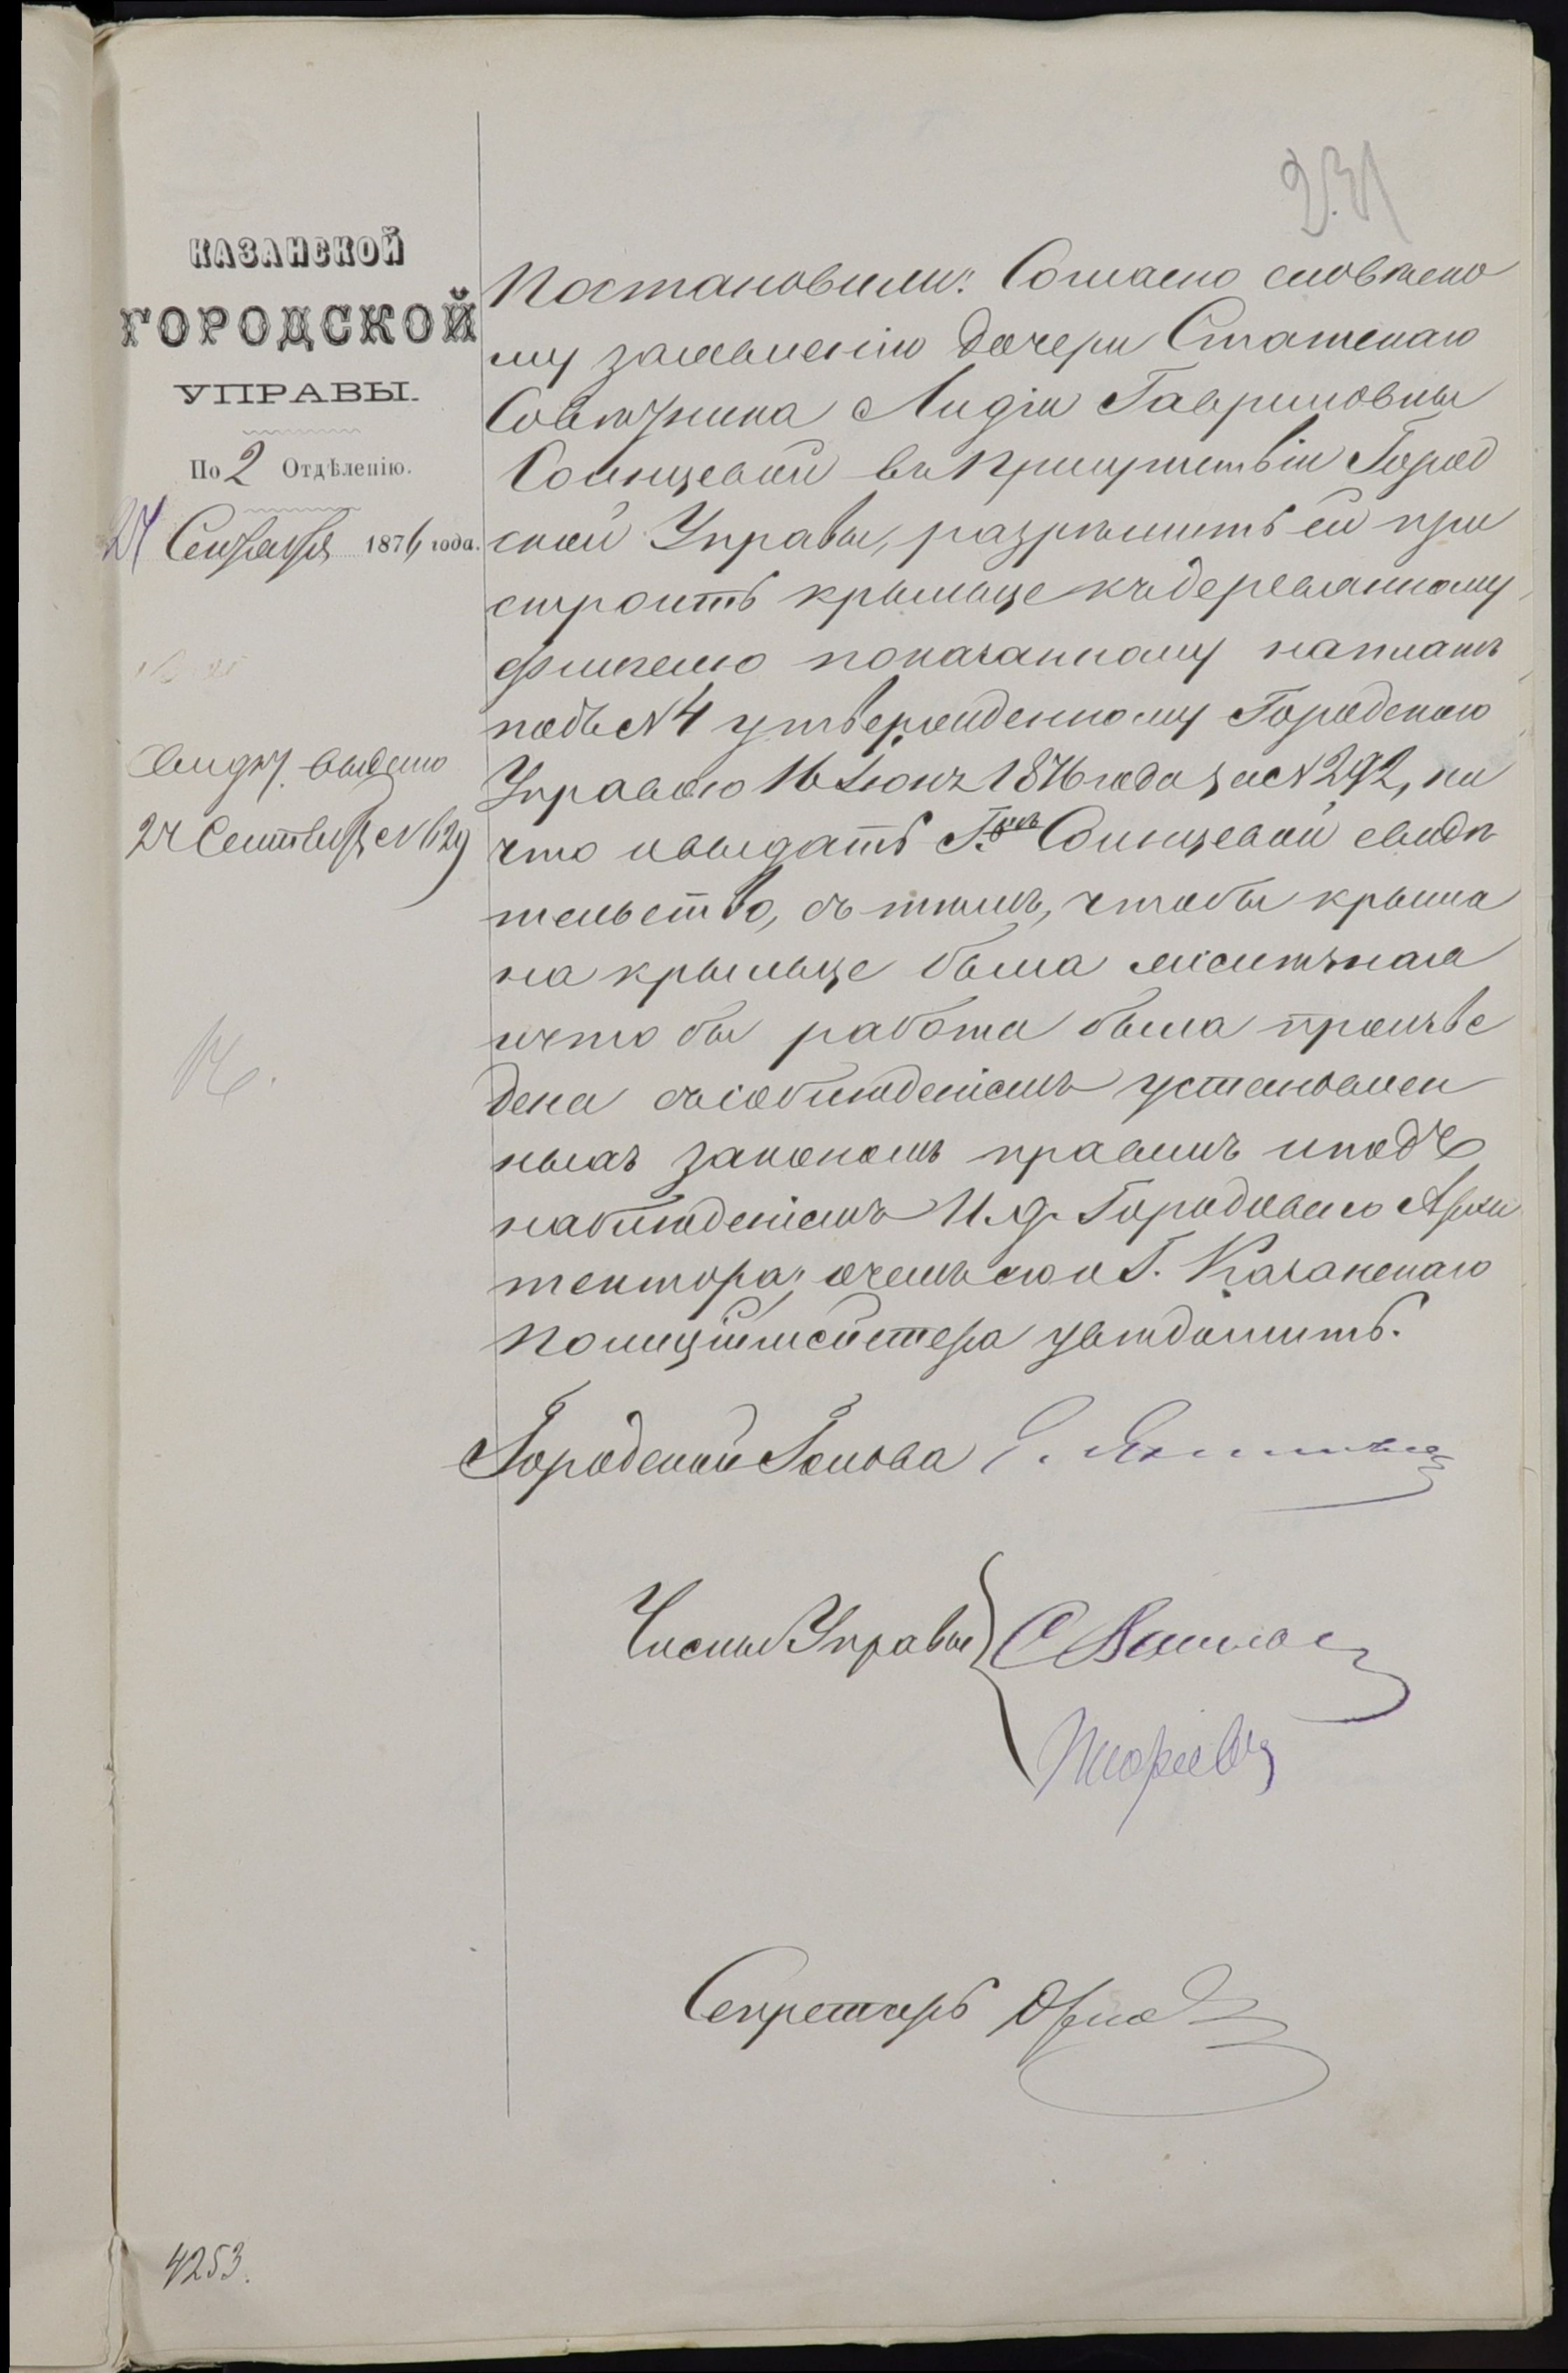 231
КАЗАНСКОЙ
ГОРОДСКОЙ
УПРАВЫ.
По 2 Отдѣленію.
27 Сентября 1876 года.
Свидѣт. выдано
27 Сентября № 629
Постановили: Согласно словесно
му заявленію дочери Статскаго
Совѣтника Лидіи Гавриловны
Солнцевой въ присутствіи Город
ской Управы, разрѣшить ей при
строить крыльцо къ деревянному
флигелю показанному на планѣ
подъ № 4 утвержденному Городскою
Управою 16 Іюня 1876 года за № 292, на
что и выдать Г-жѣ Солнцевой свидѣ
тельство, съ тѣмъ, чтобы крыша
на крыльце была желѣзная
и что бы работа была произве
дена съ соблюденіемъ установлен
ныхъ закономъ правилъ и подъ
наблюденіемъ И.д. Городоваго Архи
тектора; о чемъ его и Г. Казанскаго
Полиціймейстера увѣдомить.
Городской Голова
Члены Управы
Секретарь
4253.